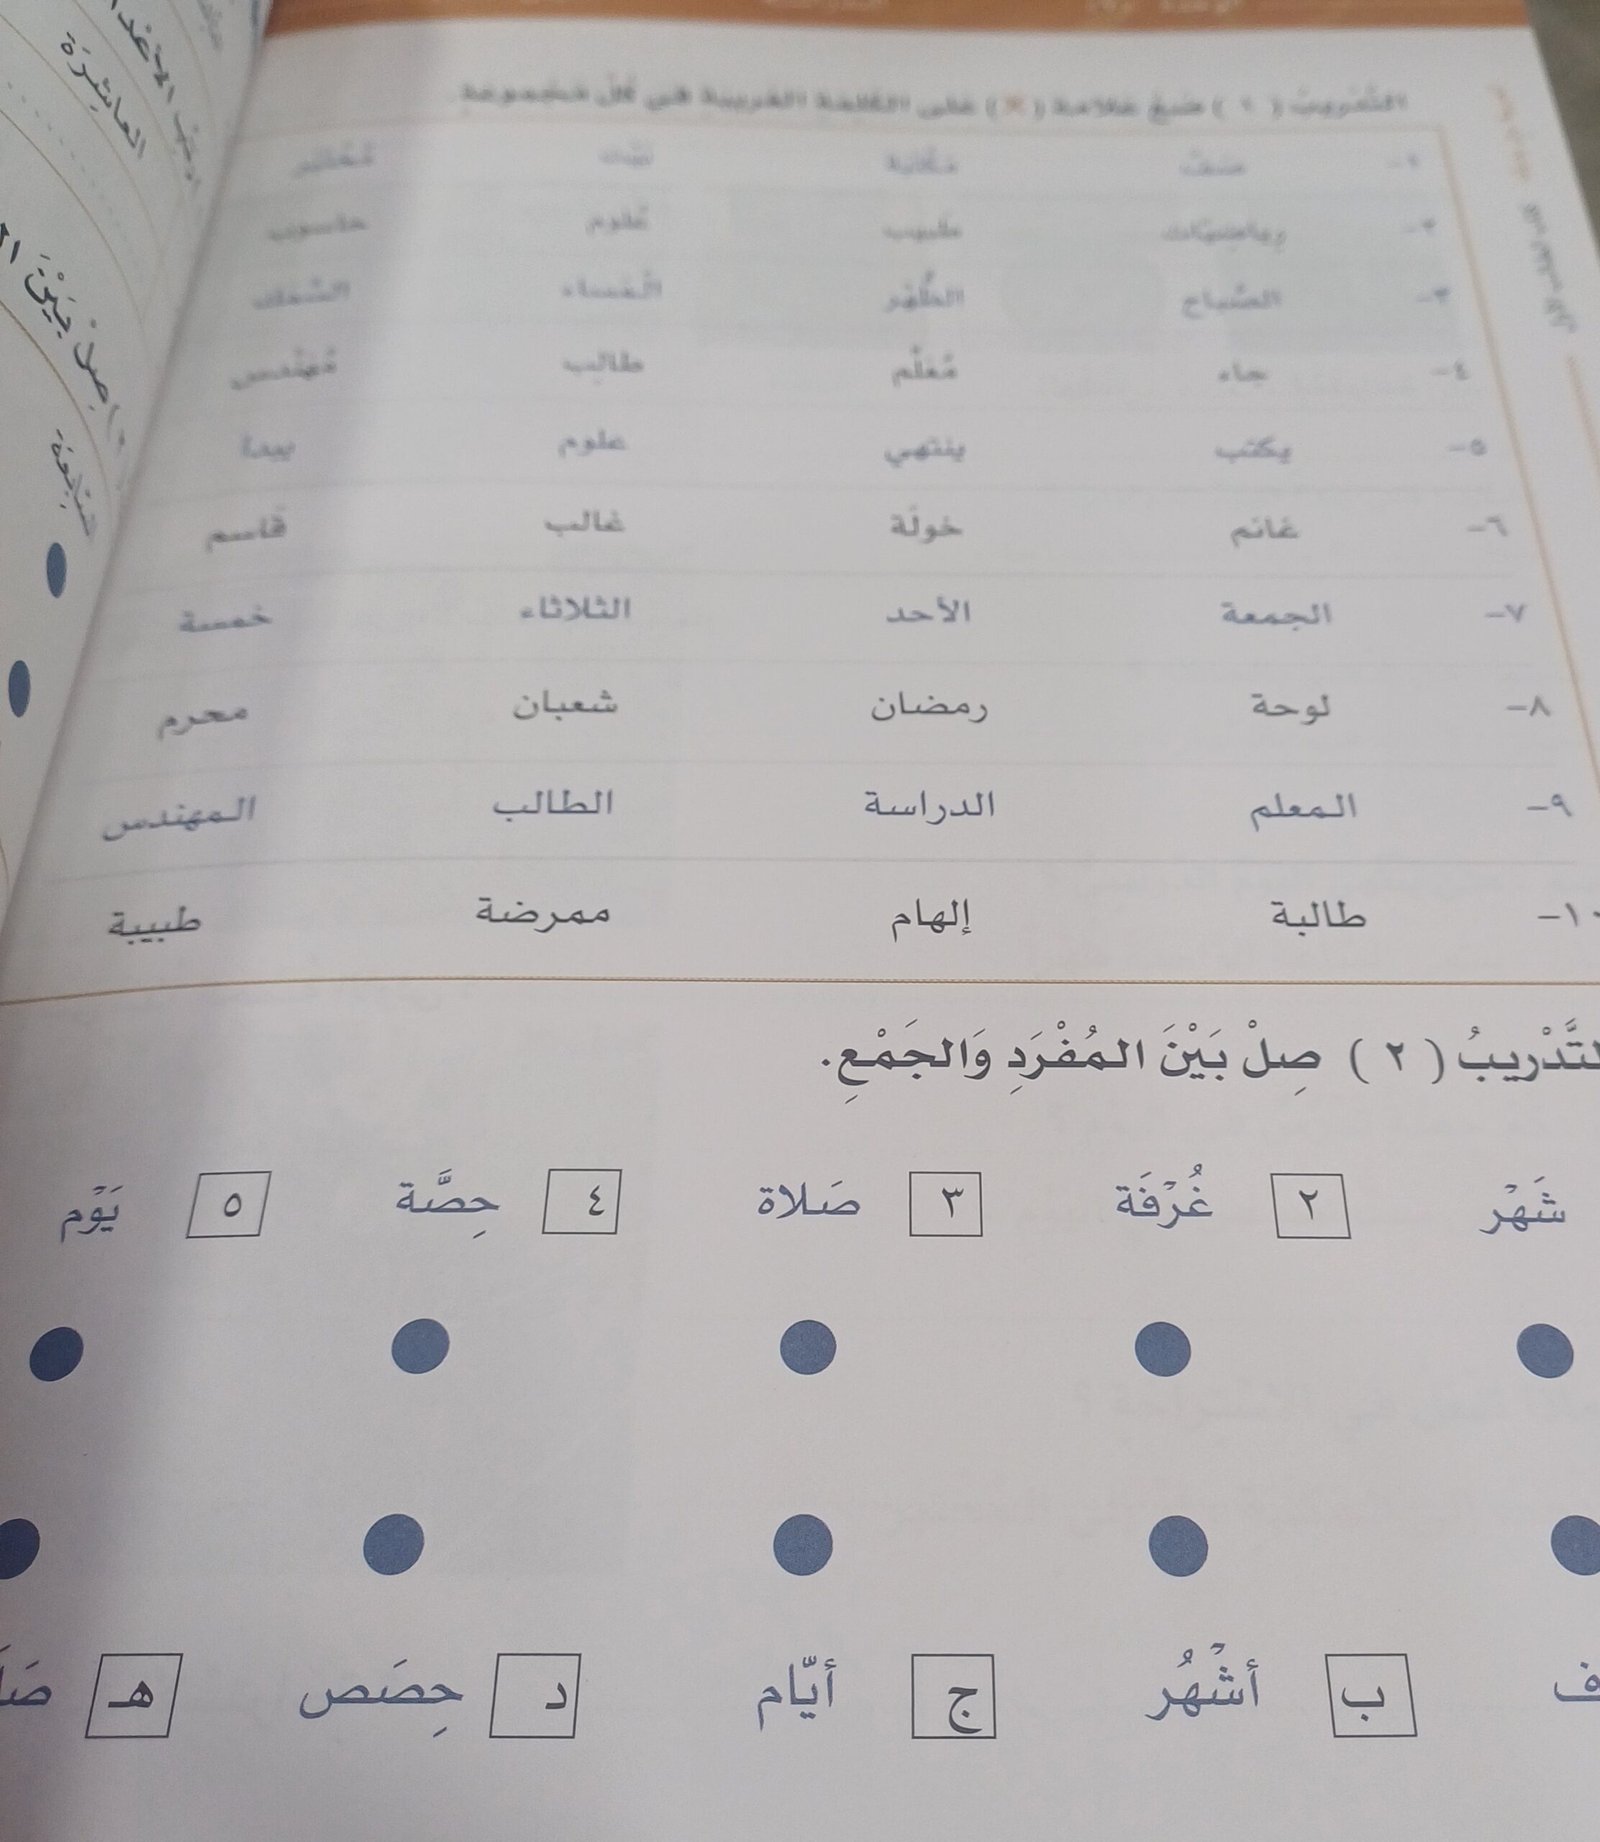 التدريب ( ١ ) ضع علامة (×) على الكلمة الغريبة في كل مجموعة.
١- صف مكتبة بيت مختبر
٢- رياضيات طبيب علوم حاسوب
٣- الصَّباح الظُّهر المَساء
٤- جاء مُعَلّم طالب مُهَنْدس
٥- يكتب ينتهي علوم يبدأ
٦- غانم خولة غالب قاسم
٧- الجمعة الأحد الثلاثاء خمسة
٨- لوحة رمضان شعبان محرم
٩- المعلم الدراسة الطالب المهندس
١٠- طالبة إلهام ممرضة طبيبة
لتَّدْريبُ ( ٢ ) صِلْ بَيْنَ المُفْرَدِ وَالجَمْعِ.
شَهْر ٢ غُرْفَة ٣ صَلاة ٤ حِصَّة ٥ يَوْم
ف ب أشْهُر ج أيّام د حِصَص هـ صَلَ
العاشِرَة
صِلْ بَيْنَ